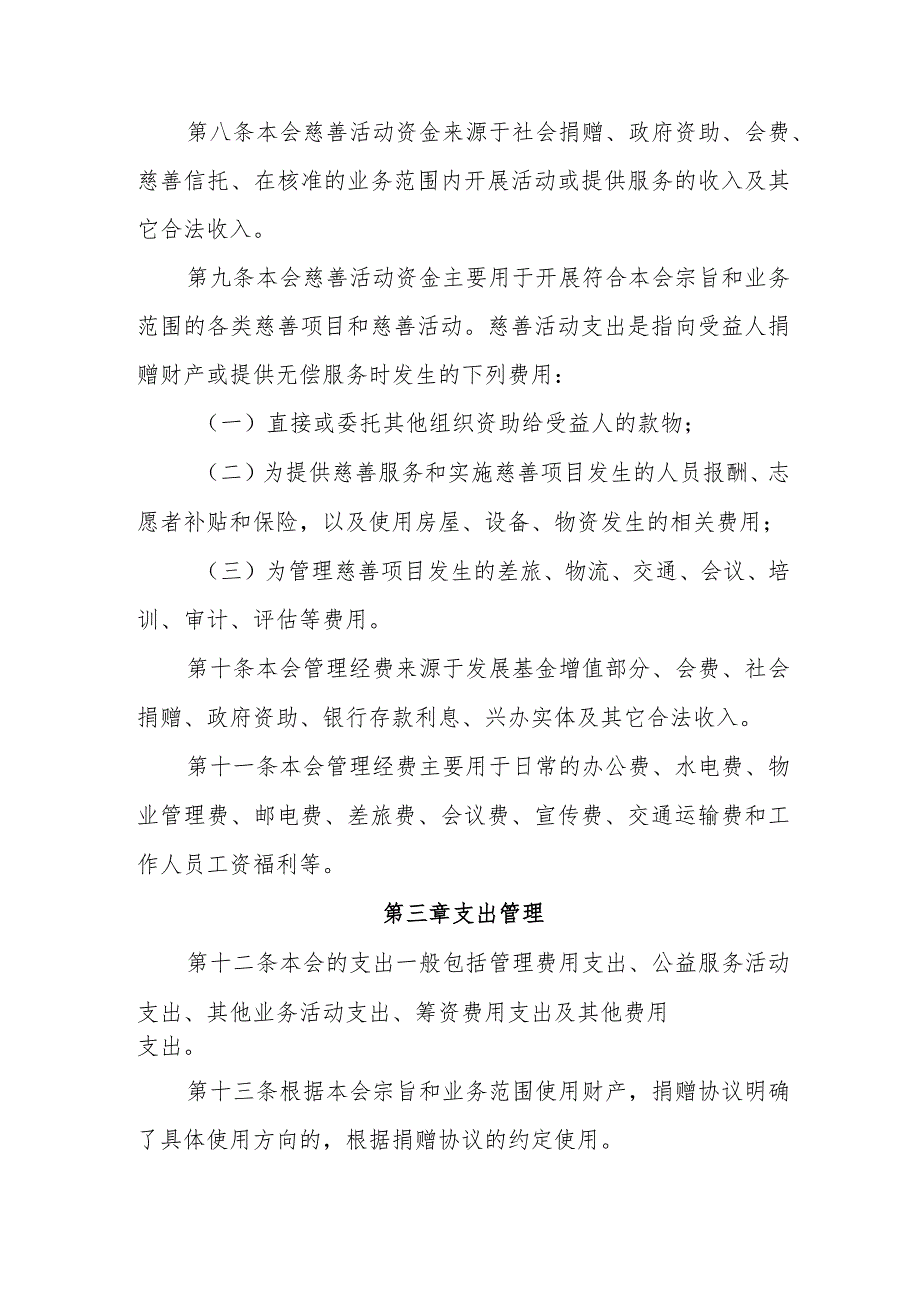 第八条本会慈善活动资金来源于社会捐赠、政府资助、会费、
慈善信托、在核准的业务范围内开展活动或提供服务的收入及其
它合法收入。
第九条本会慈善活动资金主要用于开展符合本会宗旨和业务
范围的各类慈善项目和慈善活动。慈善活动支出是指向受益人捐
赠财产或提供无偿服务时发生的下列费用：
（一）直接或委托其他组织资助给受益人的款物；
（二）为提供慈善服务和实施慈善项目发生的人员报酬、志
愿者补贴和保险，以及使用房屋、设备、物资发生的相关费用；
（三）为管理慈善项目发生的差旅、物流、交通、会议、培
训、审计、评估等费用。
第十条本会管理经费来源于发展基金增值部分、会费、社会
捐赠、政府资助、银行存款利息、兴办实体及其它合法收入。
第十一条本会管理经费主要用于日常的办公费、水电费、物
业管理费、邮电费、差旅费、会议费、宣传费、交通运输费和工
作人员工资福利等。
第三章支出管理
第十二条本会的支出一般包括管理费用支出、公益服务活动
支出、其他业务活动支出、筹资费用支出及其他费用
支出。
第十三条根据本会宗旨和业务范围使用财产，捐赠协议明确
了具体使用方向的，根据捐赠协议的约定使用。